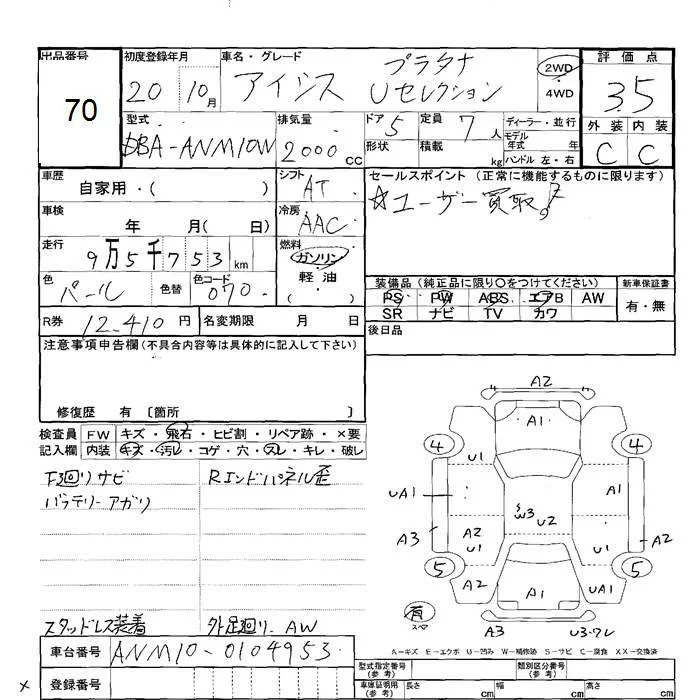 出品番号 初度登録年月 車名・グレード 評価点
70
20 10月
アイシス プラタナ Uセレクション
2WD
4WD
3.5
外装 内装
C C
型式 排気量 ドア 定員 ディーラー・並行
DBA-ANM10W 2000cc 5 7人 モデル年式 年
形状 積載 kg ハンドル 左・右
車歴 シフト セールスポイント (正常に機能するものに限ります)
自家用・( ) AT ☆ユーザー買取。
車検 冷房
年 月( 日) AAC
走行 燃料
9万5千753km ガソリン・軽油
色 色替 色コード ( )
パール 070
装備品(純正品に限り○をつけてください) 新車保証書
PS PW ABS エアB AW 有・無
SR ナビ TV カワ
R券 12,410円 名変期限 月 日 後日品
注意事項申告欄(不具合内容等は具体的に記入して下さい)
修復歴 有 〔箇所 〕
検査員 FW キズ・飛石・ヒビ割・リペア跡・×要
記入欄 内装 キズ・汚レ・コゲ・穴・スレ・キレ・破レ
F3回りサビ Rエンドパネル歪
バッテリーアガリ
スタッドレス装着 外足廻り、AW
A2
A1
4 4
U1
UA1 A1
W3 U2
A3 A2 U1 U1 A2
5 5
A2 A1 UA1
有
スペア
A3 U3・ワレ
A-キズ E-エクボ U-凹み W-補修跡 S-サビ C-腐食 XX-交換済
車台番号 ANM10-0104953
× 登録番号
型式指定番号(参考) 類別区分番号(参考)
車庫証明用(参考) 長さ cm 幅 cm 高さ cm